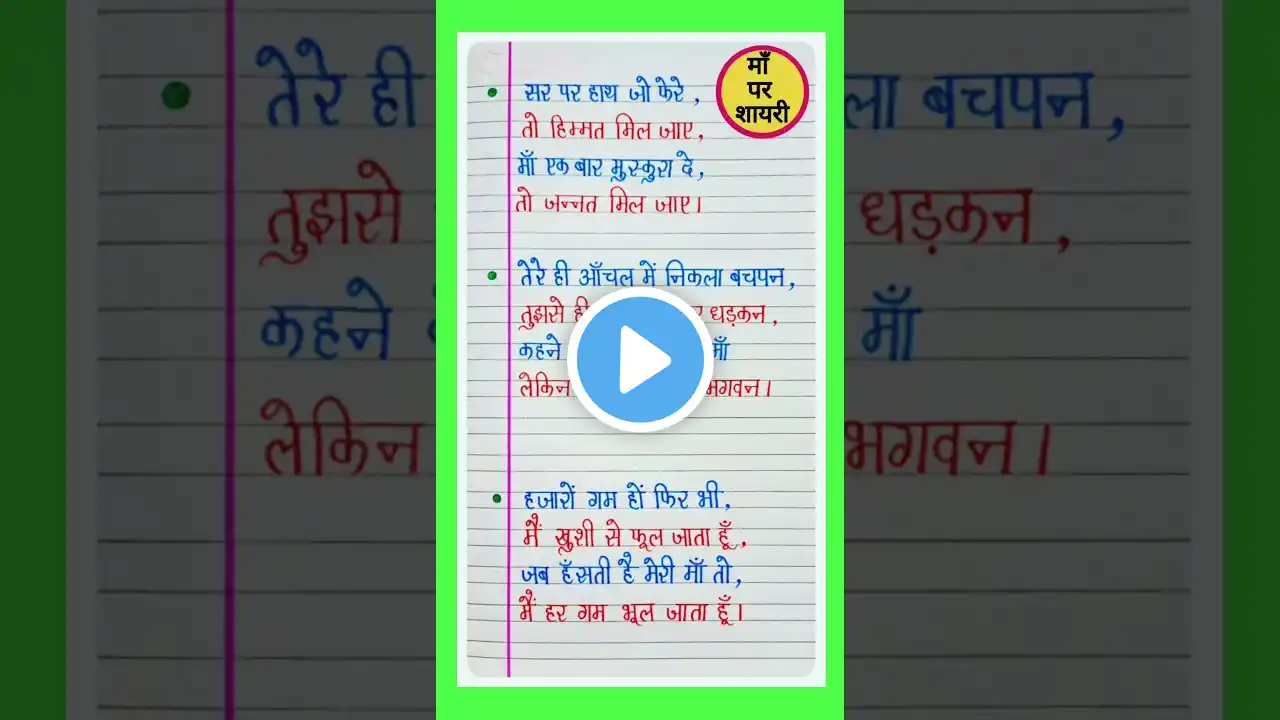 माँ
पर
शायरी
सर पर हाथ जो फेरे,
तो हिम्मत मिल जाए,
माँ एक बार मुस्कुरा दे,
तो जन्नत मिल जाए।
तेरे ही आँचल में निकला बचपन,
तुझसे ही धड़कन,
कहने माँ
लेकिन भगवन।
हजारों गम हों फिर भी,
मैं खुशी से फूल जाता हूँ,
जब हँसती है मेरी माँ तो,
मैं हर गम भूल जाता हूँ।
तेरे ही
ला बचपन,
तुझसे
धड़कन,
कहने
माँ
लेकिन
भगवन।